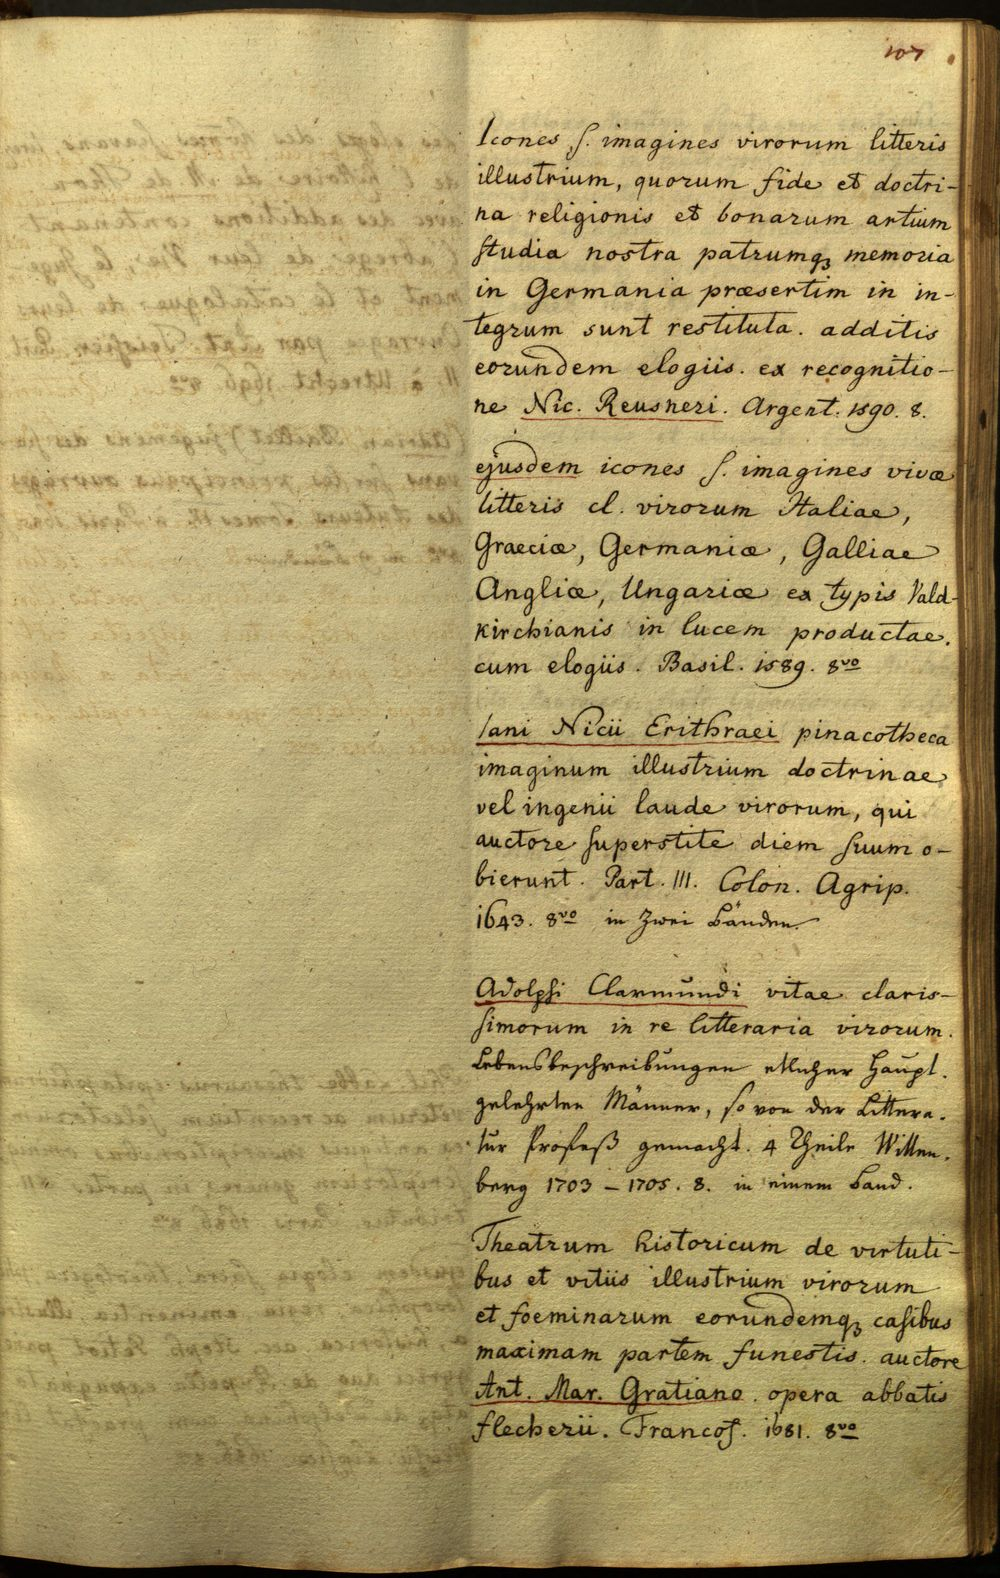 107
Icones s. imagines virorum litteris
illustrium, quorum fide et doctri-
na religionis et bonarum artium
studia nostra patrumqꝫ memoria
in Germania præsertim in in-
tegrum sunt restituta. additis
eorundem elogiis. ex recognitio-
ne Nic. Reusneri. Argent. 1590. 8.
ejusdem icones s. imagines vivæ
litteris cl. virorum Italiae,
Graeciæ, Germaniæ, Galliae
Angliæ, Ungariæ ex typis Vald-
kirchianis in lucem productae.
cum elogiis. Basil. 1589. 8vo
Iani Nicii Erithraei pinacotheca
imaginum illustrium doctrinae
vel ingenii laude virorum, qui
auctore superstite diem suum o-
bierunt. Part. III. Colon. Agrip.
1643. 8vo in zwei Bänden.
Adolphi Clarmundi vitae claris-
simorum in re litteraria virorum.
Lebensbeschreibungen etlicher Haupt-
gelehrten Männer, so von der Littera-
tur Profeß gemacht. 4 Theile Witten-
berg 1703 – 1705. 8. in einem Band.
Theatrum historicum de virtuti-
bus et vitiis illustrium virorum
et foeminarum eorundemqꝫ casibus
maximam partem funestis. auctore
Ant. Mar. Gratiano. opera abbatis
flecherii. Francof. 1681. 8vo